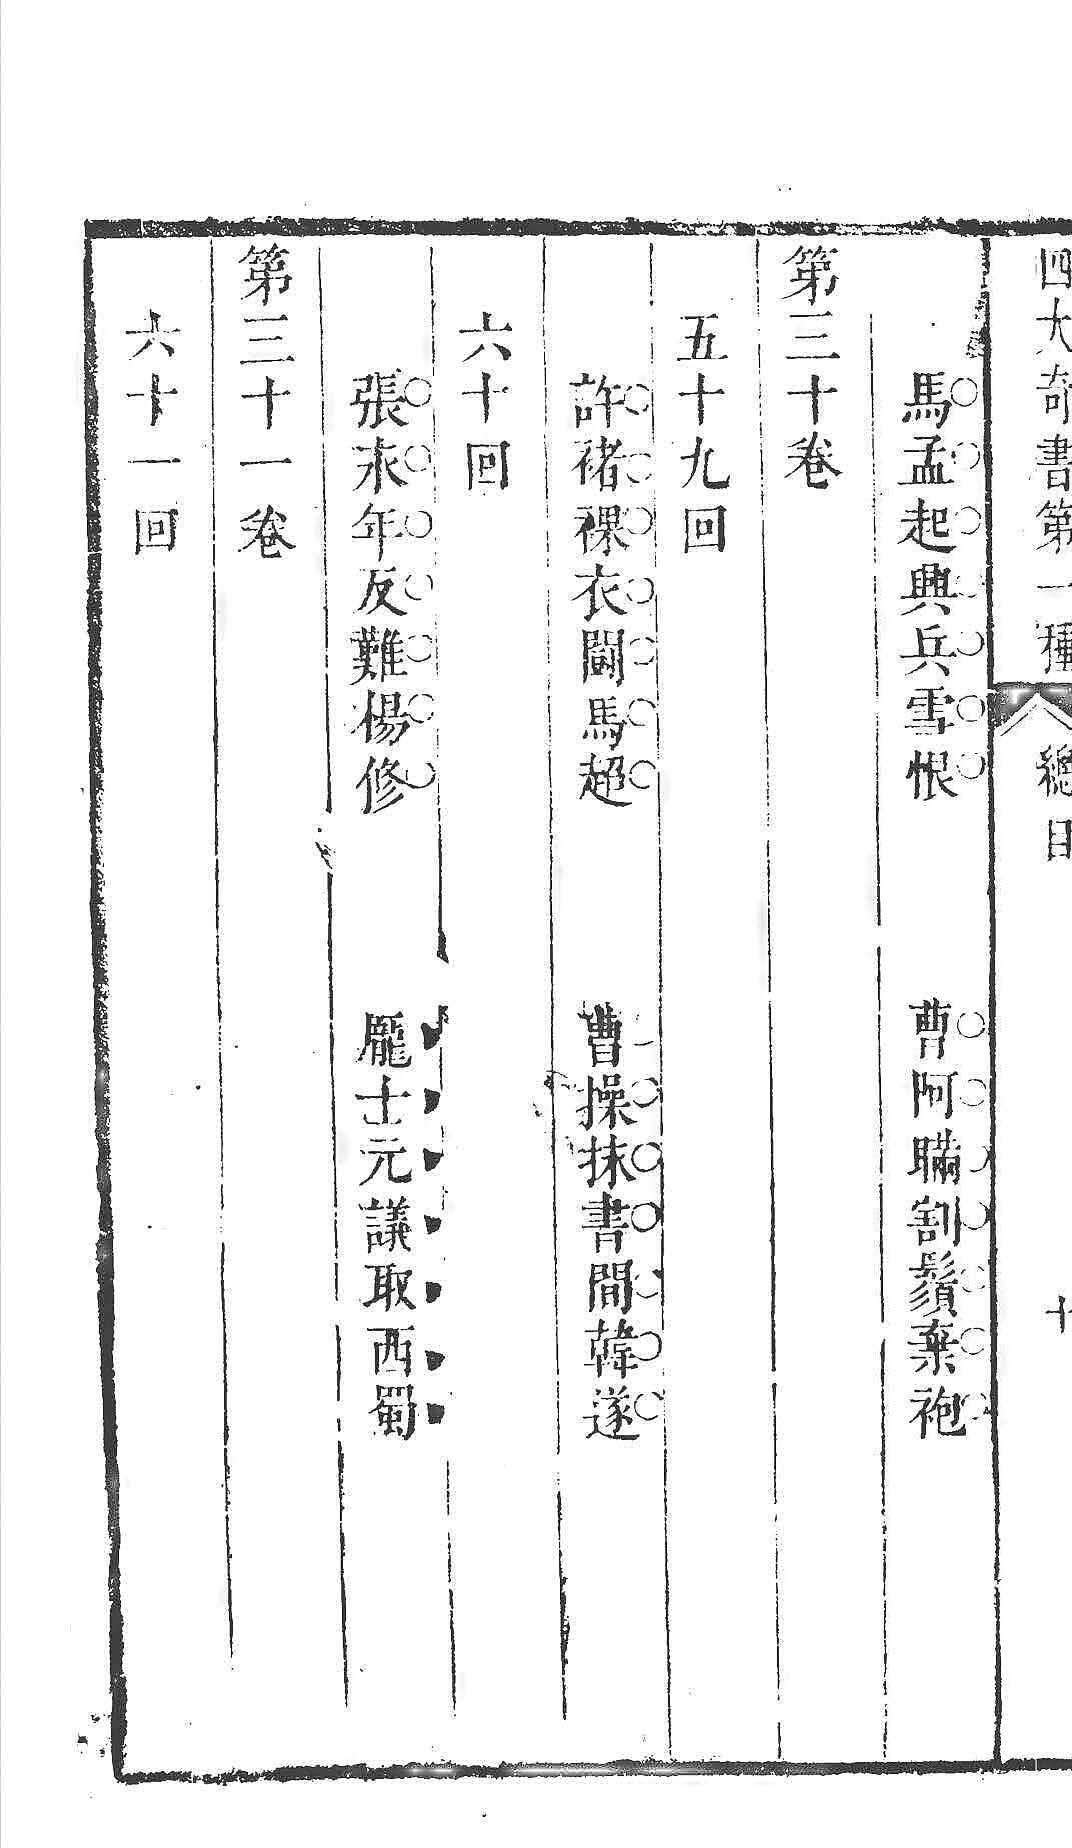 四大奇書第一種 總目 十
馬孟起興兵雪恨 曹阿瞞割鬚棄袍
第三十卷
五十九回
許褚裸衣鬬馬超 曹操抹書間韓遂
六十回
張永年反難楊修 龐士元議取西蜀
第三十一卷
六十一回